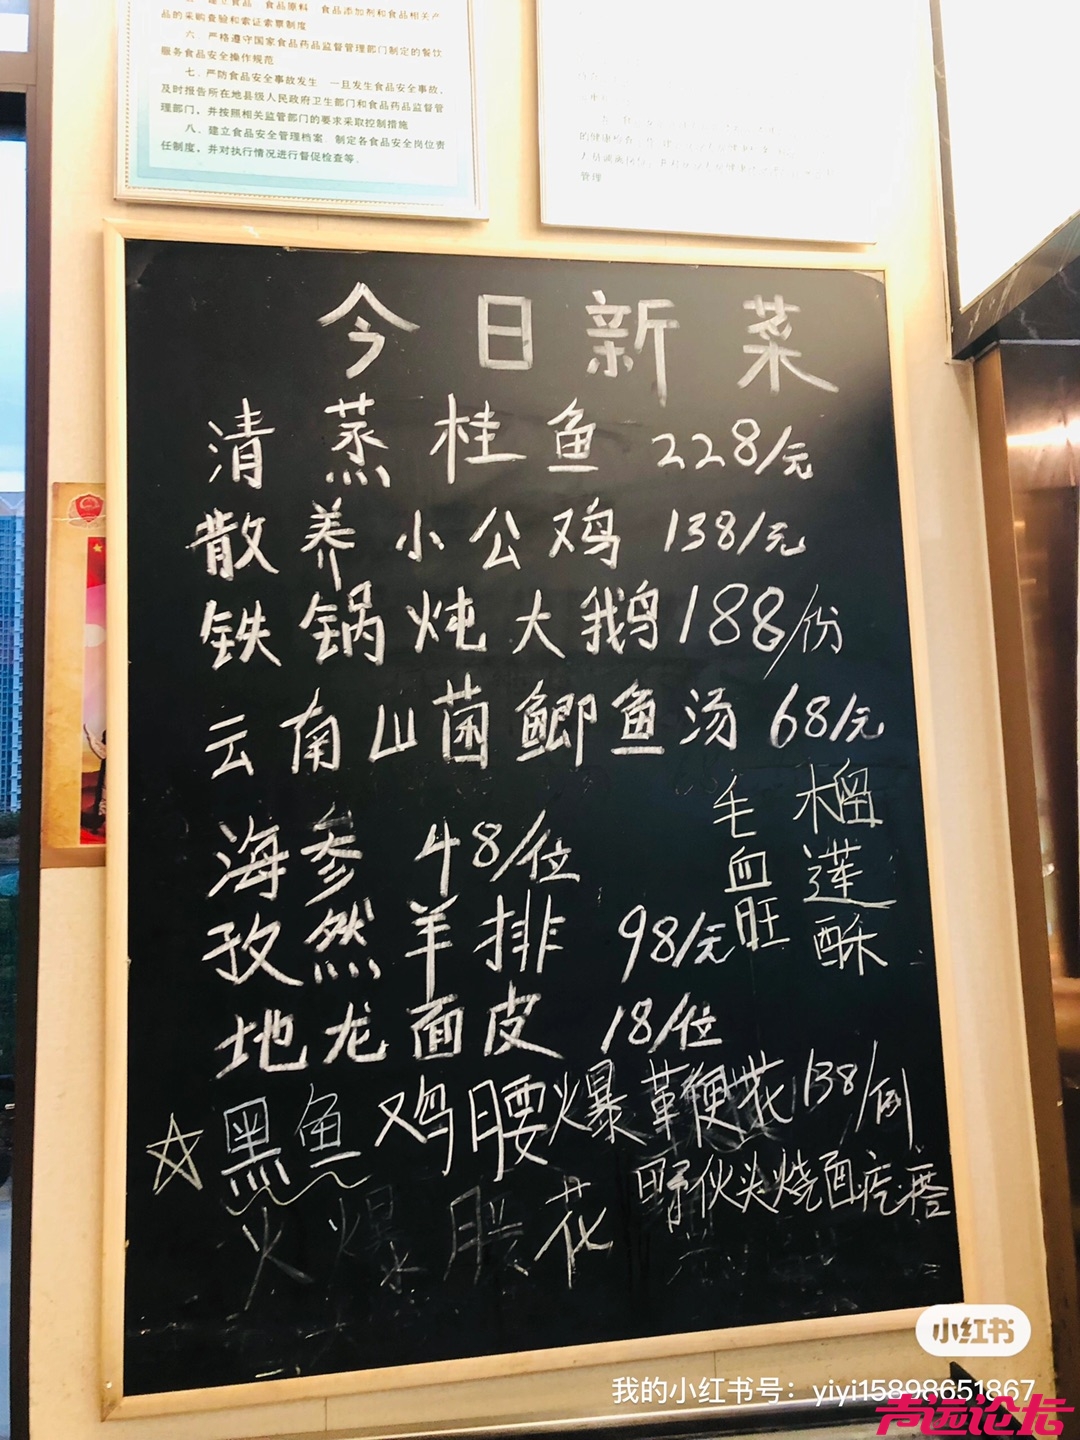 八、建立食品 食品原料 食品添加剂和食品相关产
品的采购查验和索证索票制度
六、严格遵守国家食品药品监督管理部门制定的餐饮
服务食品安全操作规范
七、严防食品安全事故发生 一旦发生食品安全事故、
及时报告所在地县级人民政府卫生部门和食品药品监督管
理部门，并按照相关监管部门的要求采取控制措施
八、建立食品安全管理档案，制定各食品安全岗位责
任制度，并对执行情况进行督促检查等。
的健康检查
管理
今日新菜
清蒸桂鱼 228/元
散养小公鸡 138/元
铁锅炖大鹅 188/份
云南山菌鲫鱼汤 68/元
毛血旺
榴莲酥
海参 48/位
孜然羊排 98/元
地龙面皮 18/位
☆黑鱼鸡腰爆鞭花 138/例
火爆 花
伙头烧面疙瘩
小红书
我的小红书号：yiyi15898651867
声远论坛